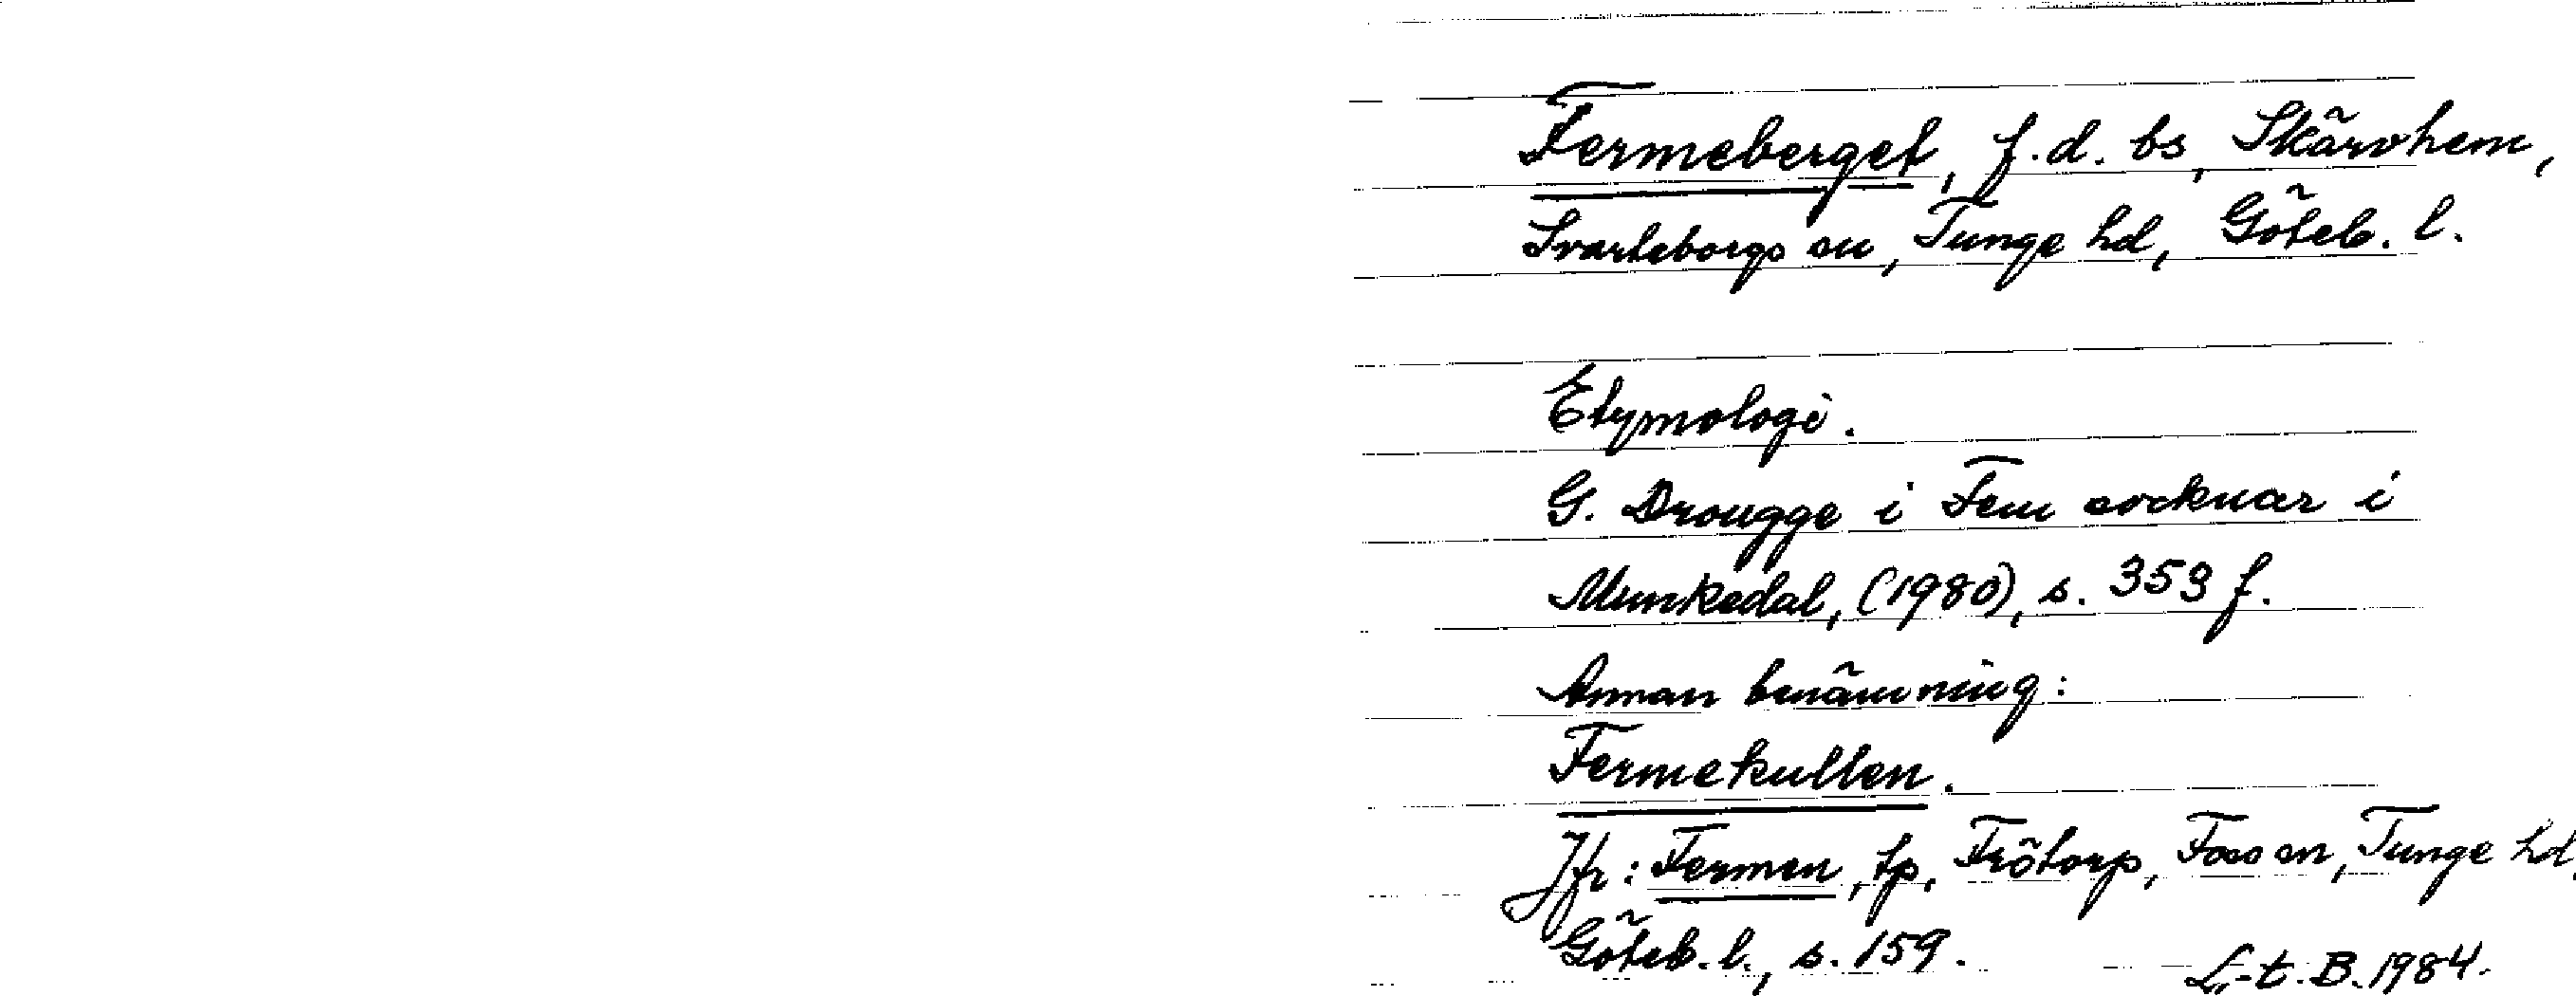 Fermeberget, f.d. bs, Skärvhem,
Svarteborgs sn, Tunge hd, Göteb. l.
Etymologi.
G. Drougge i Fem socknar i
Munkedal, (1980), s. 353 f.
Annan benämning:
Fermekullen.
Jfr: Fermen, tp, Frötorp, Foss sn, Tunge hd,
Göteb. l., s. 159.
L-t. B. 1984.